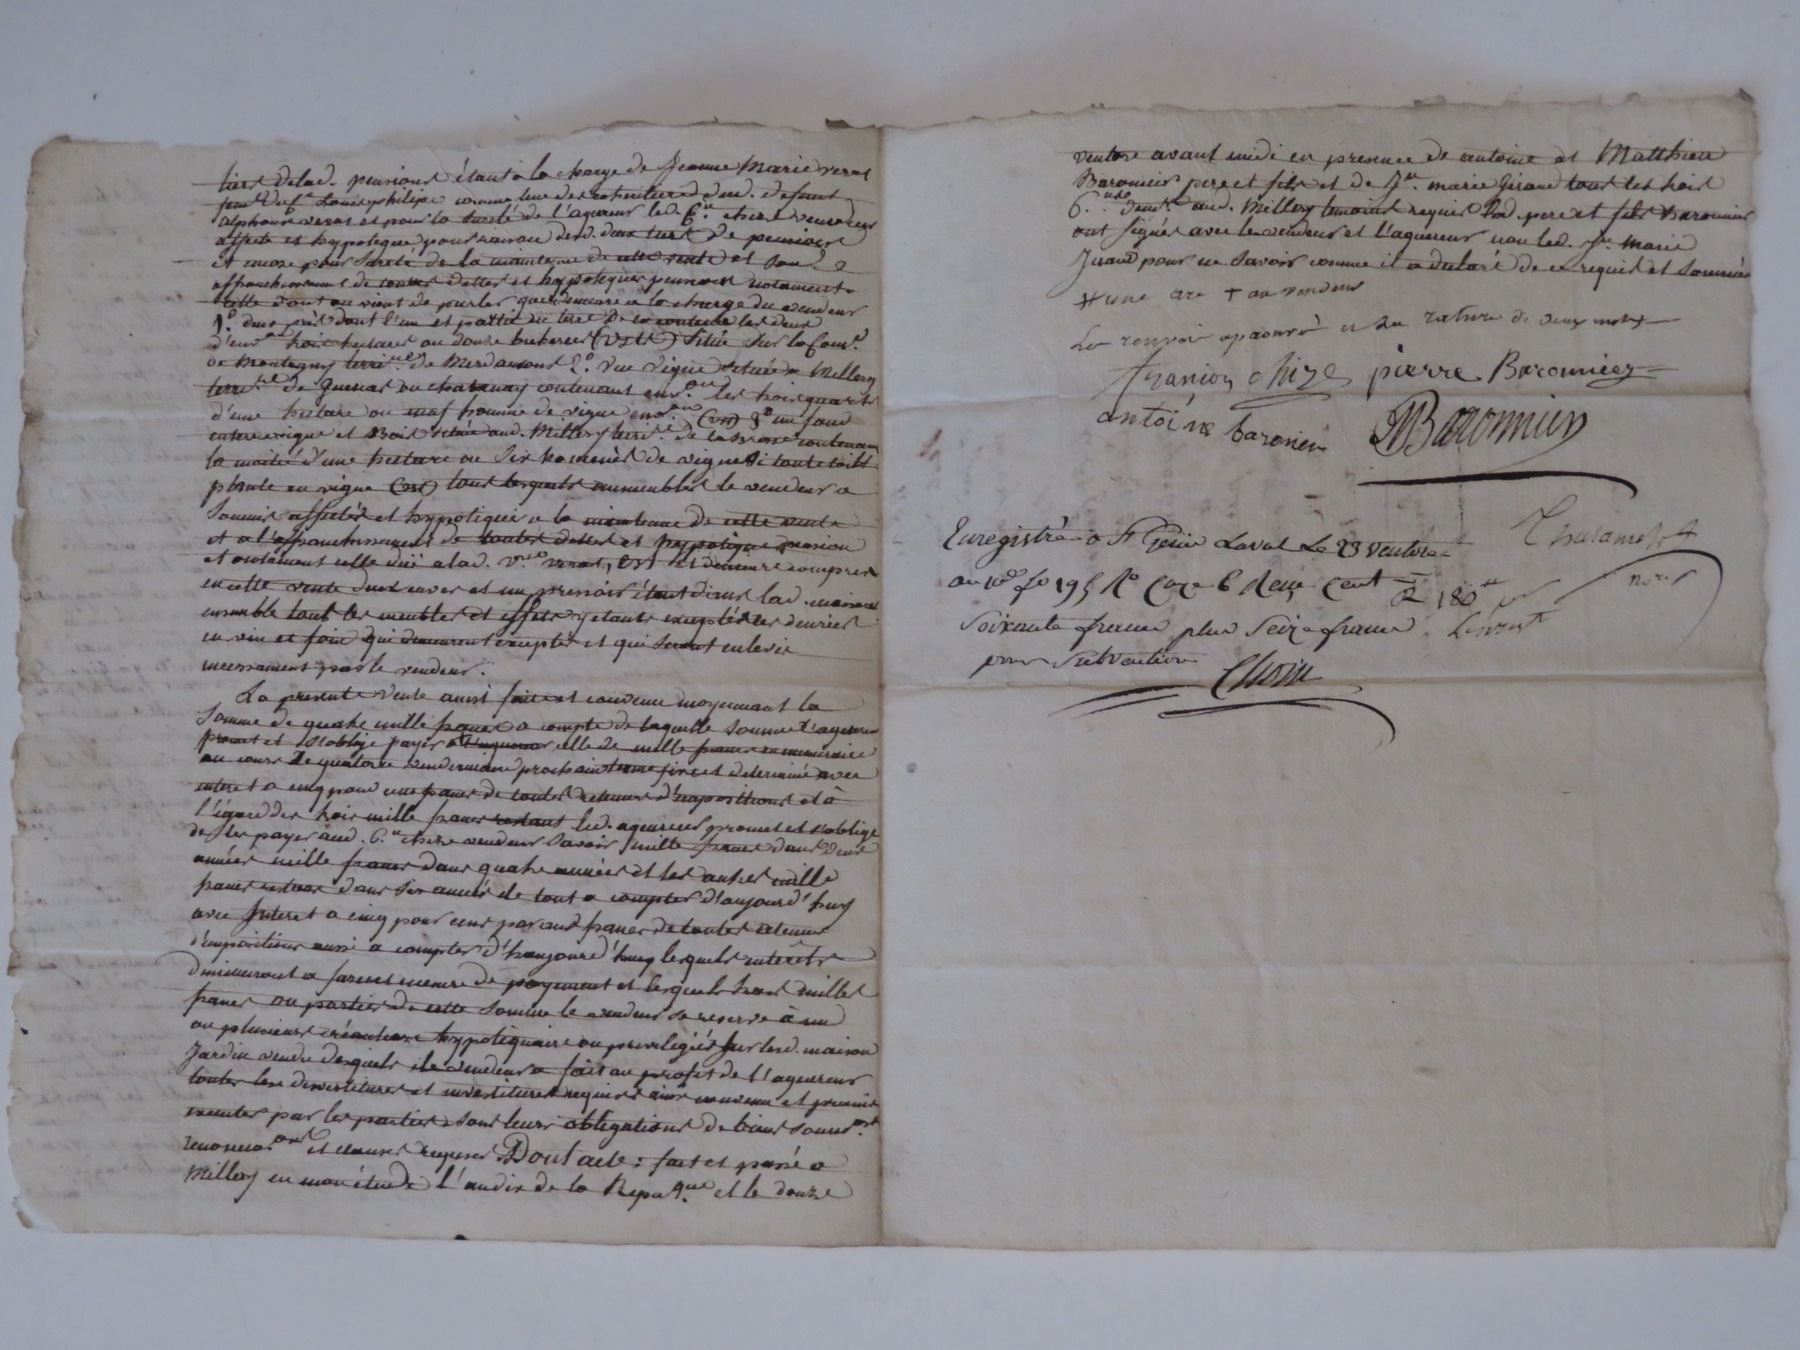 tiers delad. pensions étant à la charge de Jeanne Marie veras
Louis philipe comme lune des defunt
alphonse veras et pour la sureté de l'aquereur led. C.en chize vendeur
affecte et hypoteque pour raison desd. deux tiers de pensions
et encore pour sureté de la maintenue de cette vente et son
affranchissement de toutes dettes et hypoteques pension notament
celle dont on vient de parler qui encore a la charge du vendeur
1.° deux prés dont l'un et partie en terre de la contenue les deux
d'env.on trois hectares ou douze bicherées (VstE) situé sur la com.e
de Montagny terri.re de Merdanson 2.° une vigne située a Millery
terr.re de ou chatanay contenant env.on les trois quarts
d'une hectare ou neuf homme de vigne env.on (vst) 3° un fond
entre vigne et bois situé aud. Millery terri.re de la contenant
la moitié d'une hectare ou six homenés de vigne si toute etoit
plante en vigne (vst) tous lesquels immeubles le vendeur a
soumis affectés et hypotequé a la maintenue de cette vente
et a l'affranchissement de toutes dettes et hypoteque pension
et notament celle due a lad. v.ve veras, Est et demeure compris
en cette vente deux cuves et un pressoir étant dans lad. maison
ensemble tous les meubles et effets y etants exceptés les denrées
en vin et foin qui demeurent exceptés et qui seront enlevés
incessament par le vendeur.
La presente vente ainsi faite et convenue moyennant la
somme de quatre mille francs a compte de laquelle somme l'aquereur
promet et s'oblige payer a celle de mille francs en numeraire
au cours le quatorze vendemiaire prochain terme fixe et determiné avec
interet a cinq pour cent francs de toutes retenues d'impositions et à
l'égard des trois mille francs restants led. aquereur promet et s'oblige
de les payer aud. C.en chize vendeur savoir mille francs dans deux
années mille francs dans quatre années et les autres mille
francs restans dans six années le tout a compter d'aujourd'huy
avec Interet a cinq pour cent par an francs de toutes retenues
d'impositions aussi a compter d'haujourd'huy lesquels interêts
diminueront a fur et mesure de payement et lesquels trois milles
francs ou parties de cette somme le vendeur se reserve à un
ou plusieurs créanciers hypotequaire ou privilegiés sur lesd. maison
Jardin vendu desquels le vendeur a fait au profit de l'aquereur
toutes les devestitures et investitures requises ainsi convenu et promis
executer par les parties sous leurs obligations de biens soumis.ons
renoncia.ons et clauses requises Dont acte : fait et passé a
Millery en mon étude l'an dix de la Repu.que et le douze
ventose avant midi en presence de antoine et Matthieu
Baronnier pere et fils et de J.n marie Giraud tous les trois
C.ens dem.t aud. Millery temoins requis lesd. pere et fils Baronnier
ont signés avec le vendeur et l'aquereur non led. J.n Marie
Giraud pour ne savoir comme il a declaré de ce requis et sommée
# une are + au vendeur
Le renvoi aprouvé et la rature de deux mots
franson chize pierre Baronnier
antoine baronier MBaronnier
Enregistré a St Genis Laval Le 23 ventose
an 10e fo 195 Ro Case 6 Reçu Cent 180
Soixante francs plus Seize francs
pour Subvention
Thusame
nore